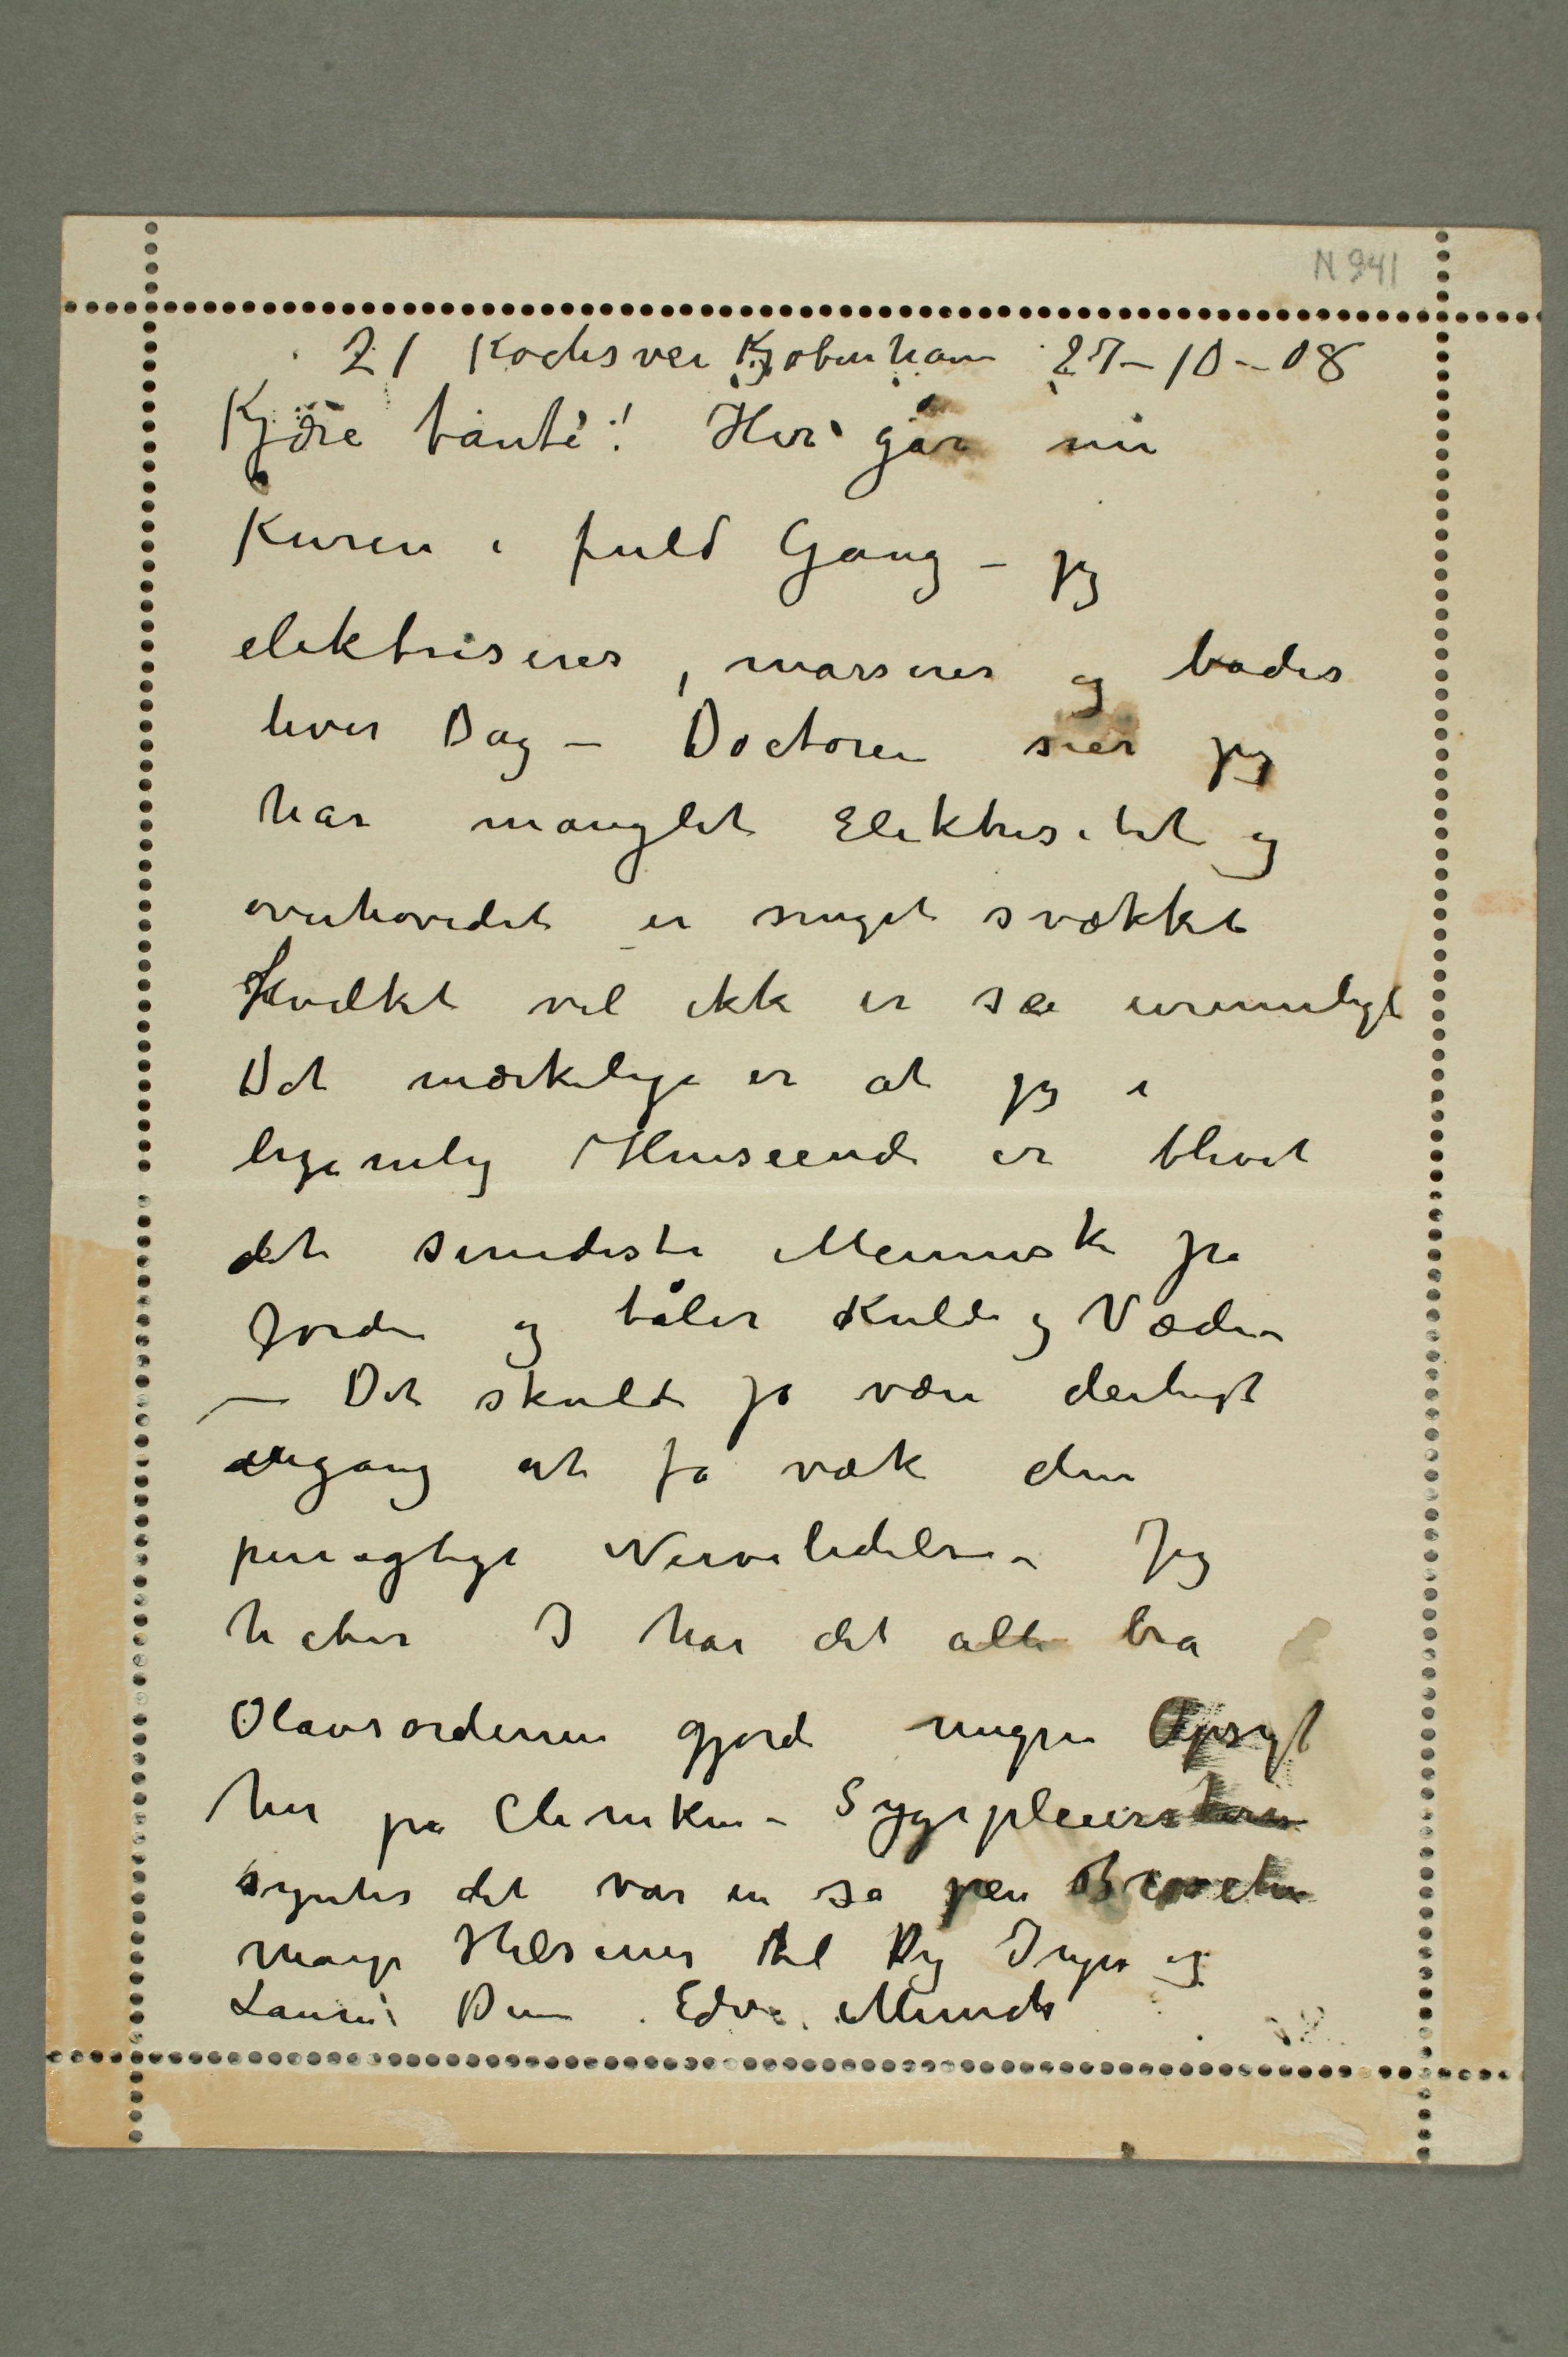 N 941
21 Kochsvei Kjøbenhavn 27–10–08
Kjære tante! Her går nu
Kuren i fuld Gang – jeg
elektriseres, masseres og bades
hver Dag – Doctoren sier jeg
har manglet Elektrisitet og
overhovedet er meget svækket
Hvilket vel ikke er så urimeligt
Det mærkelige er at jeg i
legemlig Henseende er blevet
det sundeste Menneske på
Jorden og tåler Kulde og Væde –
– Det skulde jo være deiligt
engang at få væk den
penible Nervelidelse – Jeg
håber I har det alle bra
Olavsordenen gjorde megen Opsigt
her på Cliniken – Sygepleiersken
syntes det var en så pen Broche
Mange Hilsener til Dig Inger og
Laura Din Edv. Munch